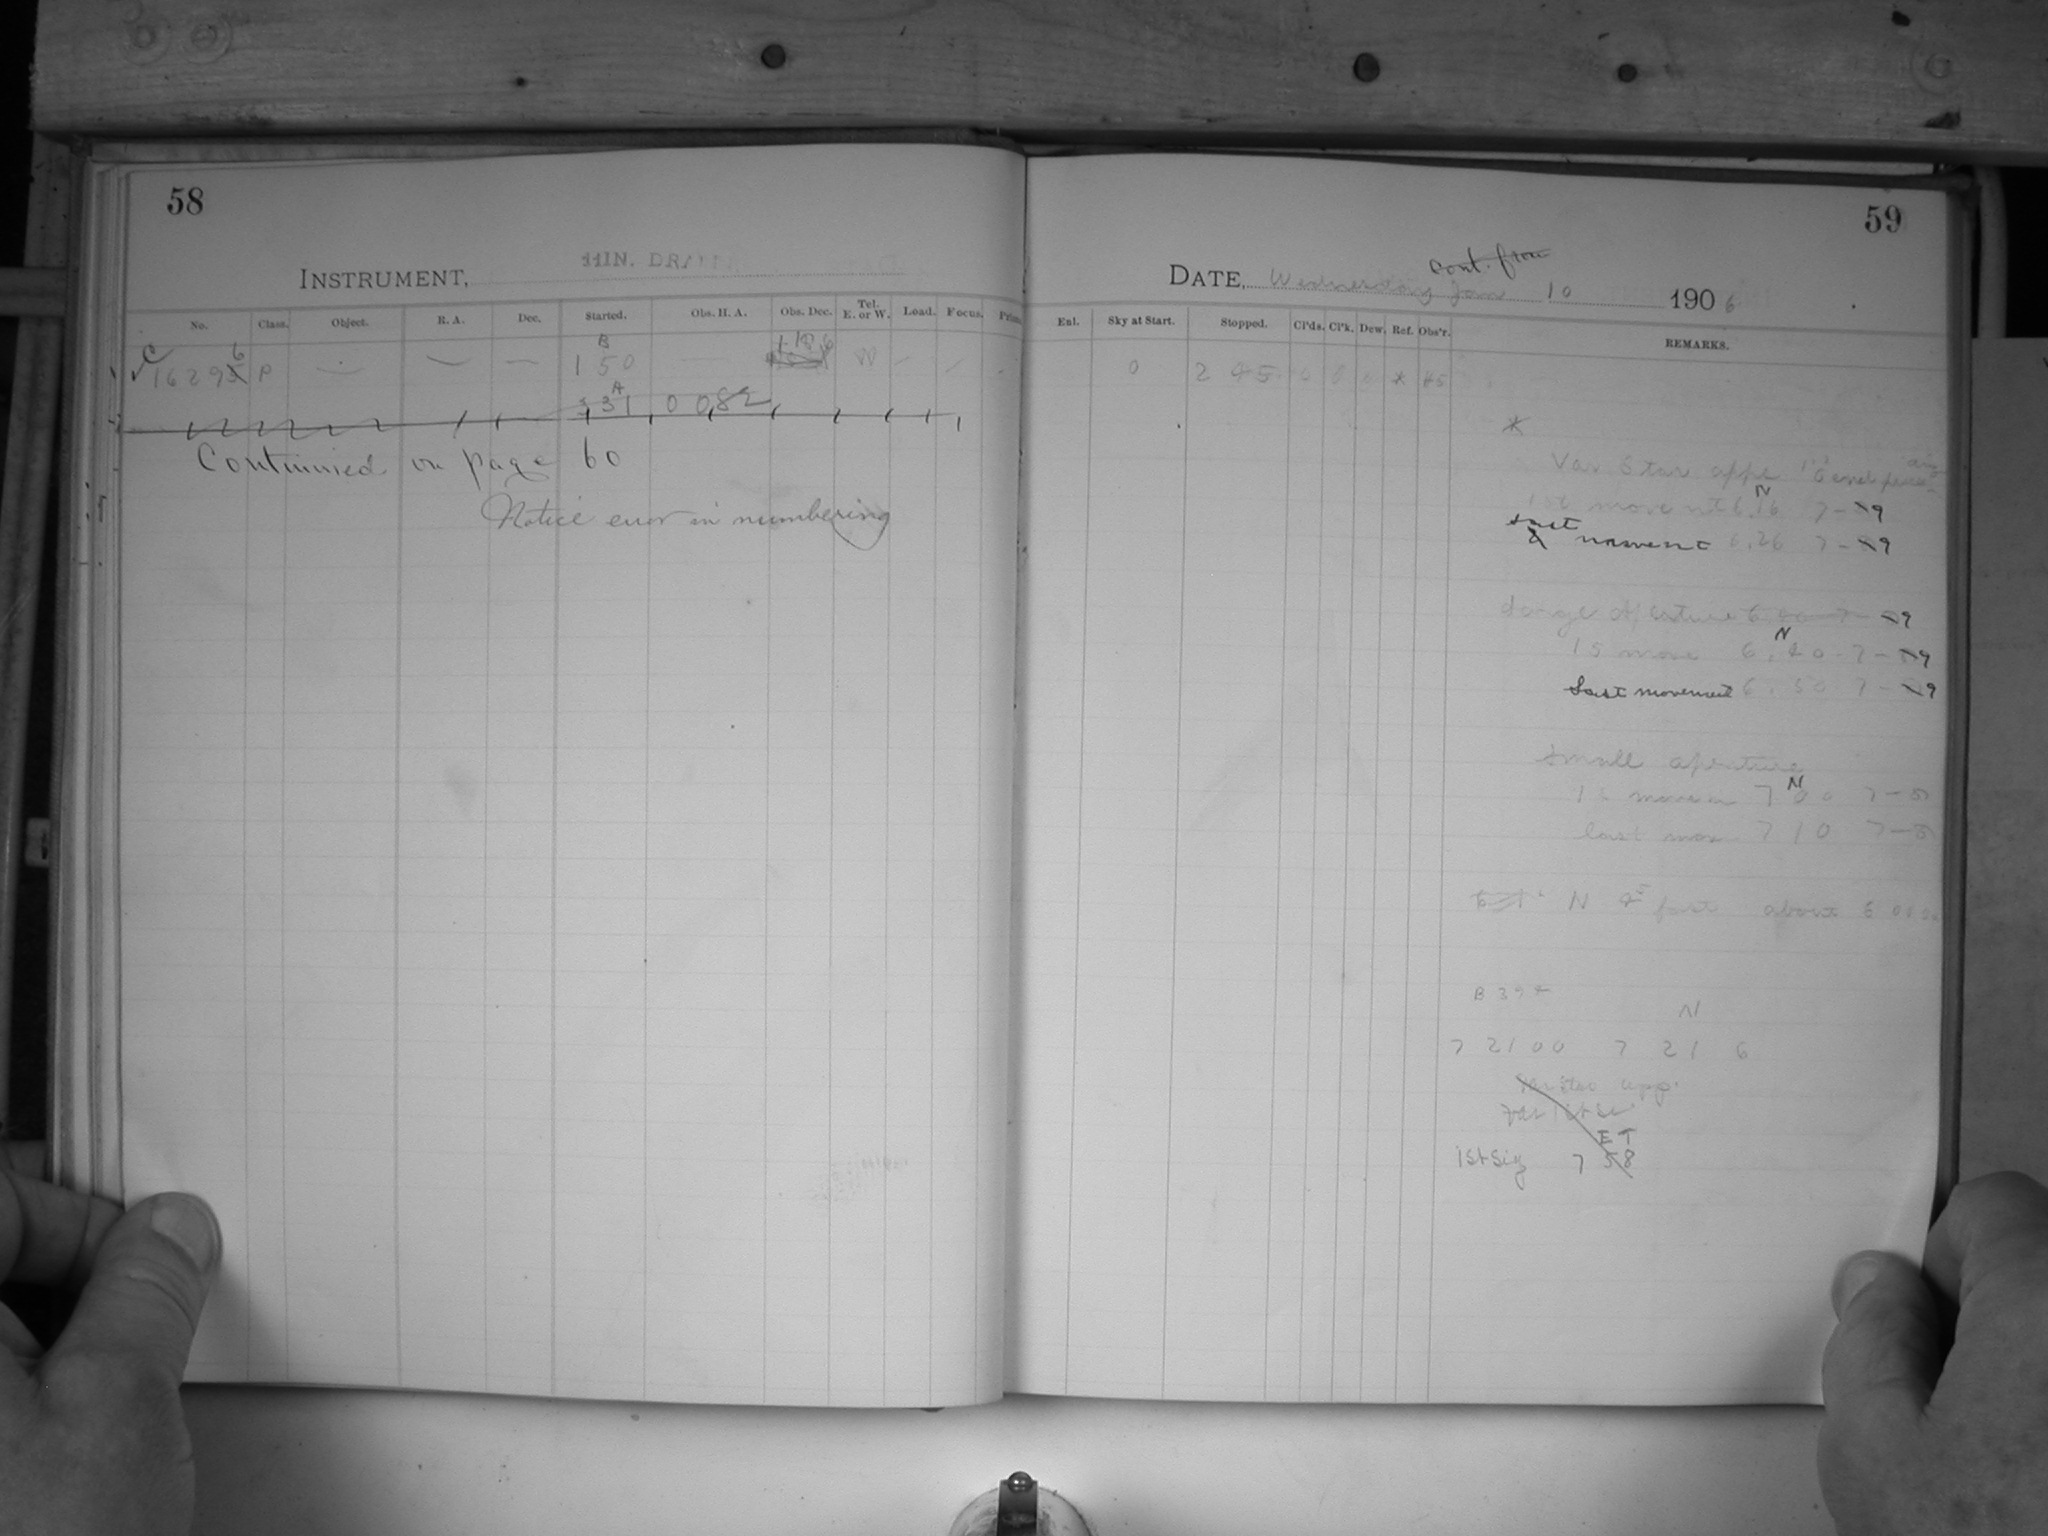 58
INSTRUMENT, 11IN. DRA
No. Class. Object. R. A. Dec. Started. Obs. H. A. Obs. Dec. Tel. E. or W. Load. Focus.
C 6 B
16295 P — — — 1 50 W
A
31 0 0,82
Continued on page 60
Notice error in numbering
59
Cont. from
DATE, Wednesday Jan 10 1906
Enl. Sky at Start. Stopped. Cl'ds. Cl'k. Dew. Ref. Obs'r. REMARKS.
0 2 45 0 0 0 *
*
Var Star app
1st movement 6.16 7-9
N
last movement 6.26 7-9
Large Aperture 6 9
N
1s move 6.40-7-9
Last movement 6.50 7-9
Small aperture
N
1s movem 7 00 7-8
last mov 7 10 7-8
N fast about 6
B 39
N
7 21 00 7 21 6
Var star app
E T
1st sig 7 58